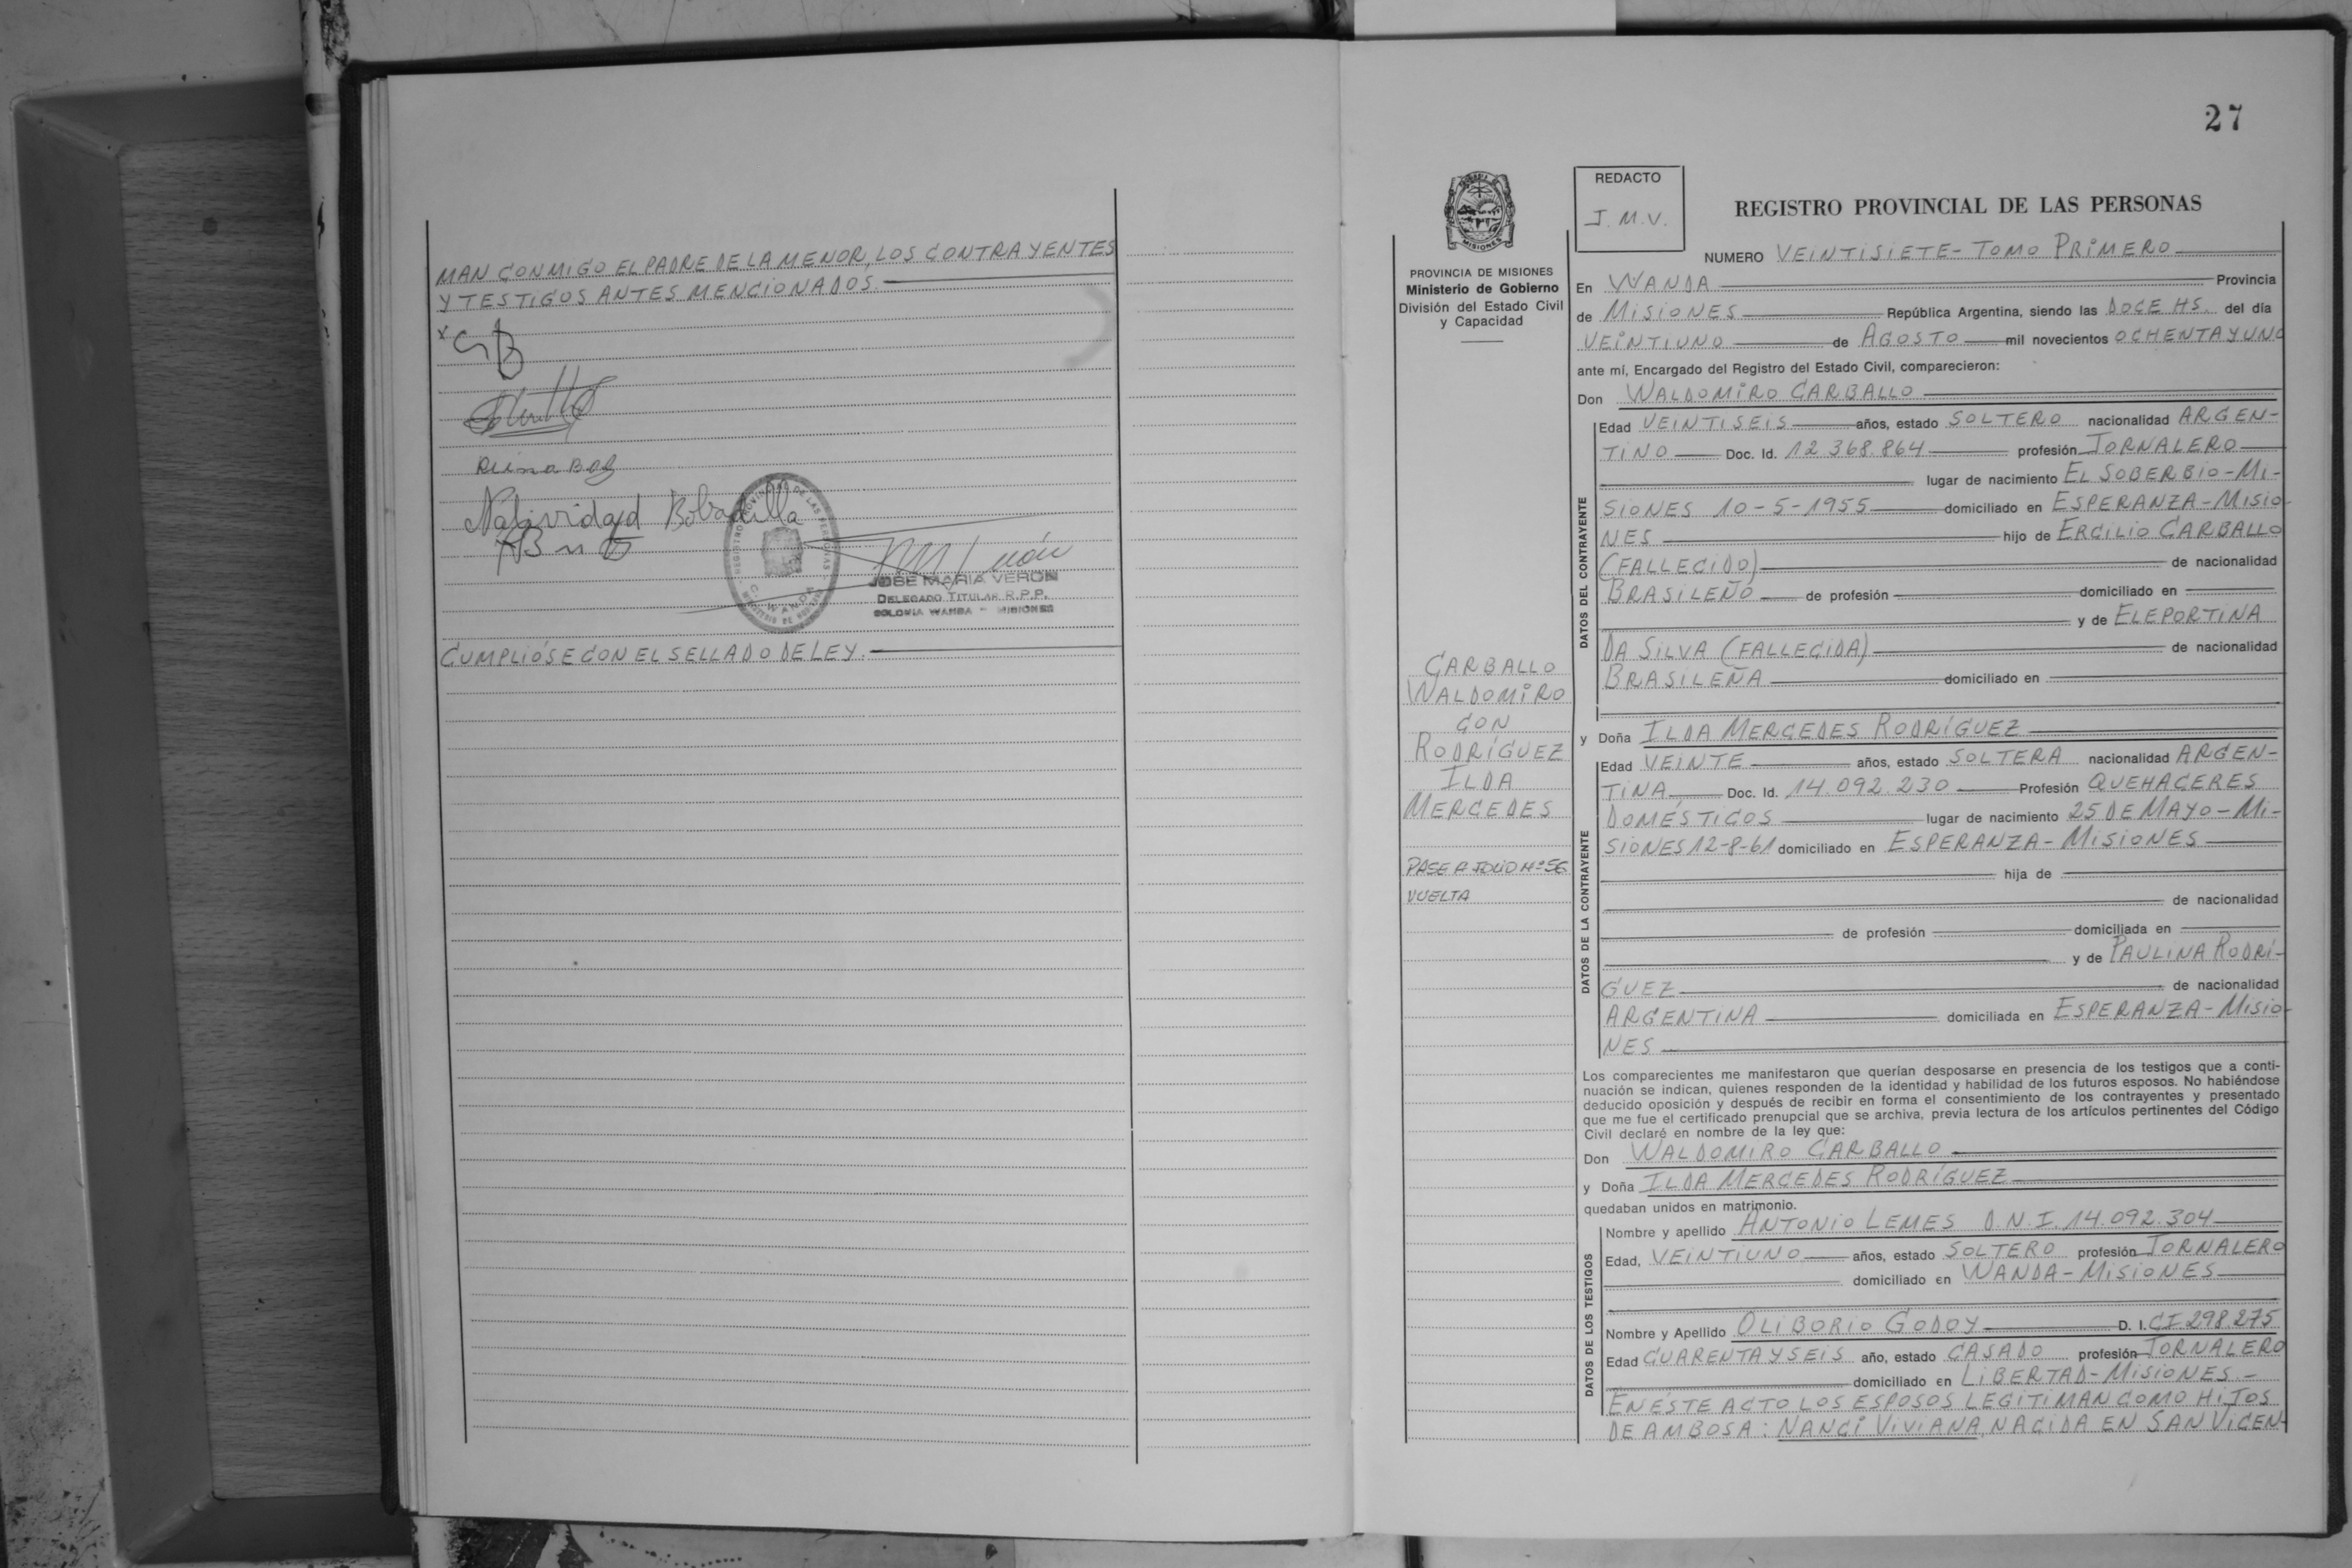 MAN CONMIGO EL PADRE DE LA MENOR, LOS CONTRAYENTES
Y TESTIGOS ANTES MENCIONADOS.
Natividad Bobadilla
REGISTRO PROVINCIAL DE LAS PERSONAS
JOSE MARIA VERON
DELEGADO TITULAR R.P.P.
COLONIA WANDA - MISIONES
CUMPLIÓSE CON EL SELLADO DE LEY.
27
REDACTO
J.M.V.
MISIONES
PROVINCIA DE MISIONES
Ministerio de Gobierno
División del Estado Civil
y Capacidad
CARBALLO
WALDOMIRO
CON
RODRÍGUEZ
ILDA
MERCEDES
PASE A FOLIO Nº 56
VUELTA
REGISTRO PROVINCIAL DE LAS PERSONAS
NUMERO VEINTISIETE - TOMO PRIMERO
En WANDA Provincia
de MISIONES República Argentina, siendo las DOCE HS. del día
VEINTIUNO de AGOSTO mil novecientos OCHENTA Y UNO
ante mí, Encargado del Registro del Estado Civil, comparecieron:
Don WALDOMIRO CARBALLO
DATOS DEL CONTRAYENTE
Edad VEINTISEIS años, estado SOLTERO nacionalidad ARGEN-
TINO Doc. Id. 12.368.864 profesión JORNALERO
lugar de nacimiento EL SOBERBIO - MI-
SIONES 10-5-1955 domiciliado en ESPERANZA - MISIO-
NES hijo de ERCILIO CARBALLO
(FALLECIDO) de nacionalidad
BRASILEÑO de profesión domiciliado en
y de ELEPORTINA
DA SILVA (FALLECIDA) de nacionalidad
BRASILEÑA domiciliado en
y Doña ILDA MERCEDES RODRÍGUEZ
DATOS DE LA CONTRAYENTE
Edad VEINTE años, estado SOLTERA nacionalidad ARGEN-
TINA Doc. Id. 14.092.230 Profesión QUEHACERES
DOMÉSTICOS lugar de nacimiento 25 DE MAYO - MI-
SIONES 12-8-61 domiciliado en ESPERANZA - MISIONES
hija de
de nacionalidad
de profesión domiciliada en
y de PAULINA RODRÍ-
GUEZ de nacionalidad
ARGENTINA domiciliada en ESPERANZA - MISIO-
NES
Los comparecientes me manifestaron que querían desposarse en presencia de los testigos que a conti-
nuación se indican, quienes responden de la identidad y habilidad de los futuros esposos. No habiéndose
deducido oposición y después de recibir en forma el consentimiento de los contrayentes y presentado
que me fue el certificado prenupcial que se archiva, previa lectura de los artículos pertinentes del Código
Civil declaré en nombre de la ley que:
Don WALDOMIRO CARBALLO
y Doña ILDA MERCEDES RODRÍGUEZ
quedaban unidos en matrimonio.
DATOS DE LOS TESTIGOS
Nombre y apellido ANTONIO LEMES D.N.I. 14.092.304
Edad, VEINTIUNO años, estado SOLTERO profesión JORNALERO
domiciliado en WANDA - MISIONES
Nombre y Apellido OLIBORIO GODOY D. I. CI. 298.275
Edad CUARENTA Y SEIS año, estado CASADO profesión JORNALERO
domiciliado en LIBERTAD - MISIONES -
EN ÉSTE ACTO LOS ESPOSOS LEGITIMAN COMO HIJOS
DE AMBOS A: NANCI VIVIANA, NACIDA EN SAN VICEN-